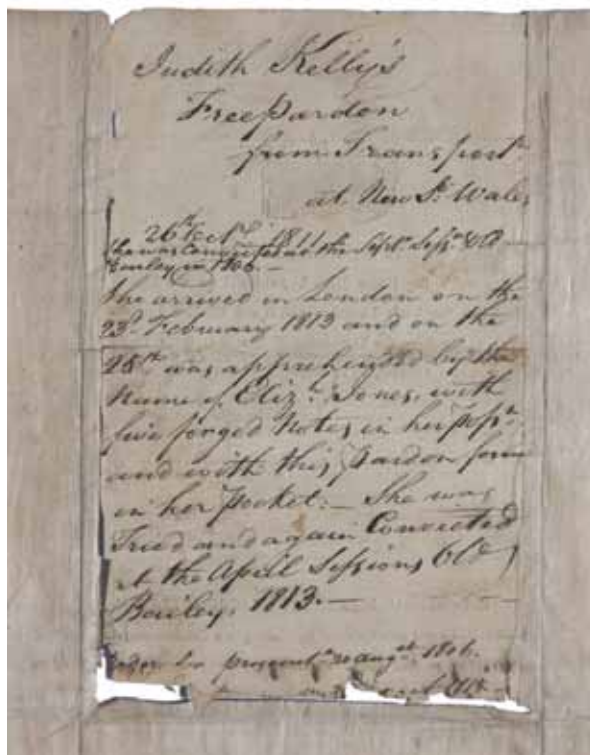 Judith Kelly's
Free Pardon
from Transportn
at New So. Wales
26th 1811
She was Convicted at the Septr Sessn Old
Bailey in 1806.—
She arrived in London on the
23d. February 1813 and on the
28th was apprehended by the
Name of Eliz: Jones, with
five forged Notes in her possn
and with this pardon form
in her Pocket:— She was
Tried and again Convicted
at the April Sessions Old
Bailey. 1813.—
Order for prosecutn 20 Augst. 1806.